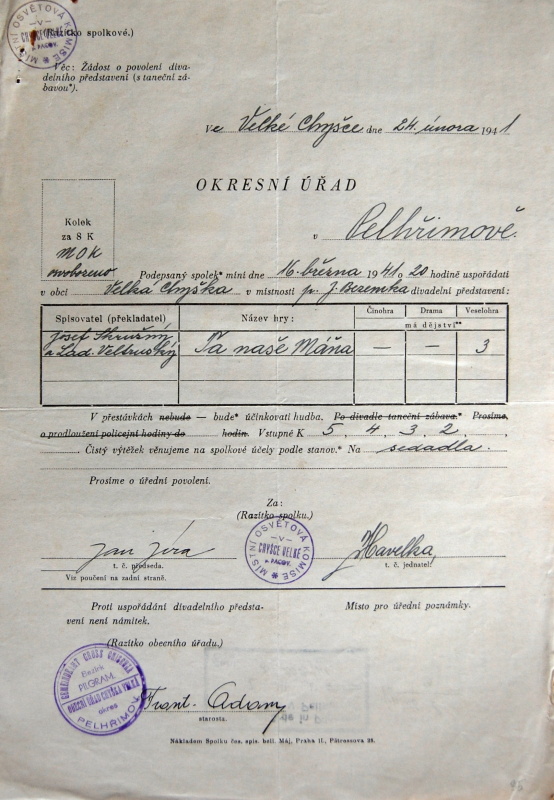 MÍSTNÍ OSVĚTOVÁ KOMISE
–V–
CHYŠCE VELKÉ
p. PACOV.
(Razítko spolkové.)
Věc: Žádost o povolení diva-
delního představení (s taneční zá-
bavou*).
Ve Velké Chyšce dne 24. února 1941
OKRESNÍ ÚŘAD
v Pelhřimově.
Kolek
za 8 K
MOK
osvobozeno
Podepsaný spolek* míní dne 16. března 1941 o 20 hodině uspořádati
v obci Velká Chyška v místnosti p. J. Bezemka divadelní představení:
Spisovatel (překladatel) Název hry: Činohra Drama Veselohra
má dějství**
Josef Skružný
a Lad. Veltruský Ta naše Máňa — — 3
V přestávkách nebude — bude* účinkovati hudba. Po divadle taneční zábava.* Prosíme,
o prodloužení policejní hodiny do hodin. Vstupné K 5, 4, 3, 2,
Čistý výtěžek věnujeme na spolkové účely podle stanov.* Na sedadla.
Prosíme o úřední povolení.
Za:
(Razítko spolku.)
MÍSTNÍ OSVĚTOVÁ KOMISE
–V–
CHYŠCE VELKÉ
p. PACOV.
Jan Jíra Havelka
t. č. předseda. t. č. jednatel.
Viz poučení na zadní straně.
Proti uspořádání divadelního představ-
vení není námitek.
Místo pro úřední poznámky.
(Razítko obecního úřadu.)
Bezirk
PILGRAM.
OBECNÍ ÚŘAD CHYŠKA VELKÁ
okres
PELHŘIMOV
Frant. Adam
starosta.
Nákladem Spolku čes. spis. bell. Máj, Praha II., Pštrossova 28.